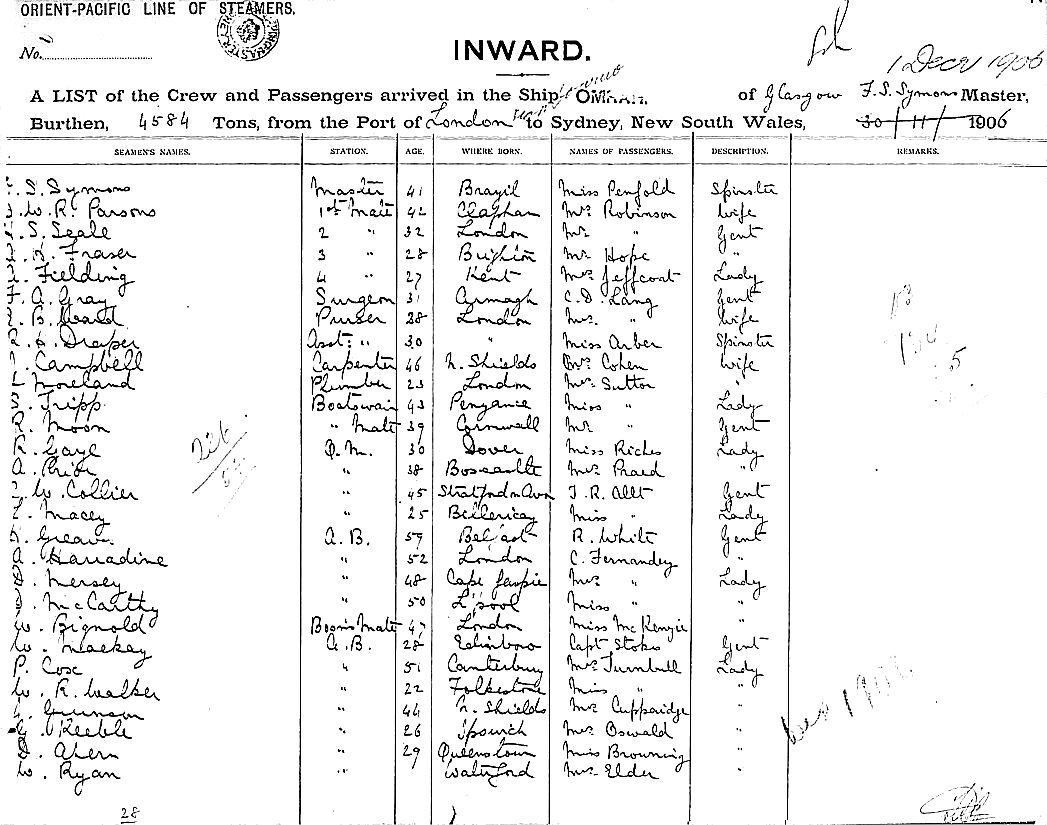 ORIENT-PACIFIC LINE OF STEAMERS.
No.
INWARD.
1 Decr 1906
A LIST of the Crew and Passengers arrived in the Ship OMRAH, of Glasgow F. S. Symons Master,
Burthen, 4584 Tons, from the Port of London to Sydney, New South Wales, 30/11/1906
SEAMEN'S NAMES. STATION. AGE. WHERE BORN. NAMES OF PASSENGERS. DESCRIPTION. REMARKS.
F. S. Symons Master 41 Brazil Miss Penfold Spinster
W. R. Parsons 1st Mate 42 Clapham Mrs Robinson Wife
S. Seale 2 " 32 London Mr " Gent
Fraser 3 " 28 Brighton Mr Hope "
Fielding 4 " 27 Kent Mrs Jeffcoat Lady
F. A. Gray Surgeon 31 Armagh C. D. Lang Gent
B. Ward Purser 38 London Mrs. " Wife
Draper Asst: " 30 " Miss Arber Spinster
Campbell Carpenter 46 N. Shields Mrs Cohen Wife
Moreland Plumber 23 London Mrs Sutton "
S. Tripp Boatswain 43 Penzance Miss " Lady
R. Moon " Mate 39 Cornwall Mr " Gent
R. Gayl Q. M. 30 Dover Miss Riches Lady
A. Prior " 38 Boscastle Mrs Praed "
W. Collier " 45 Stratford on Avon J. R. Allt Gent
Macey " 25 Billericay Miss " Lady
A. B. 59 Belfast R. White Gent
A. Harradine " 52 London C. Fernandez "
D. Mersey " 48 Cape Mrs " Lady
McCarthy " 50 L'pool Miss " "
W. Bignold Bosn's Mate 47 London Miss McKenzie "
W. Mackay A. B. 28 Edinboro Capt Stokes Gent
P. Cox " 51 Canterbury Mrs Turnbull Lady
W. R. Walker " 22 Folkestone Miss " "
" 44 N. Shields Mrs Cupparidge "
G. Keeble " 26 Ipswich Mrs Oswald "
D. Ahern " 29 Queenstown Miss Browning "
W. Ryan " Waterford Mrs Elder "
28